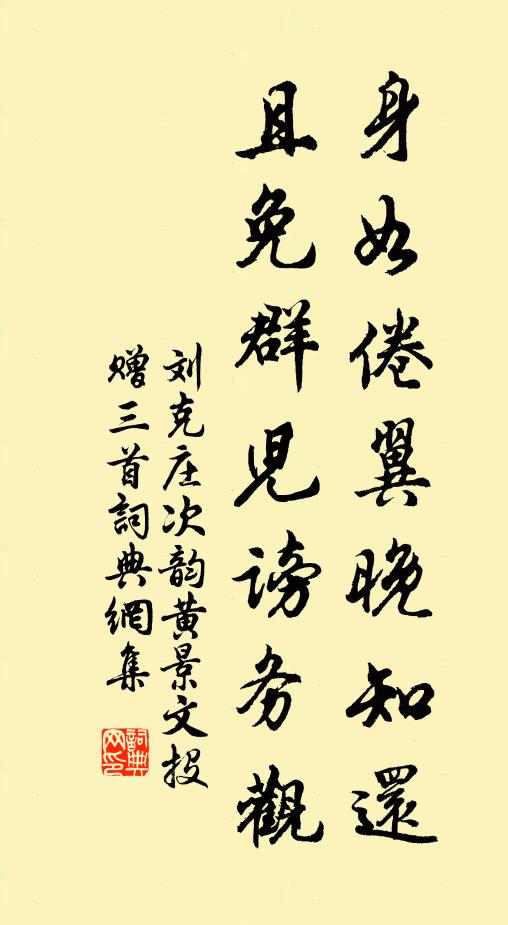 身如倦翼晚知還
且免群兒謗务觀
刘克庄次韵黄景文投
赠三首詞典網集
詞典
网印